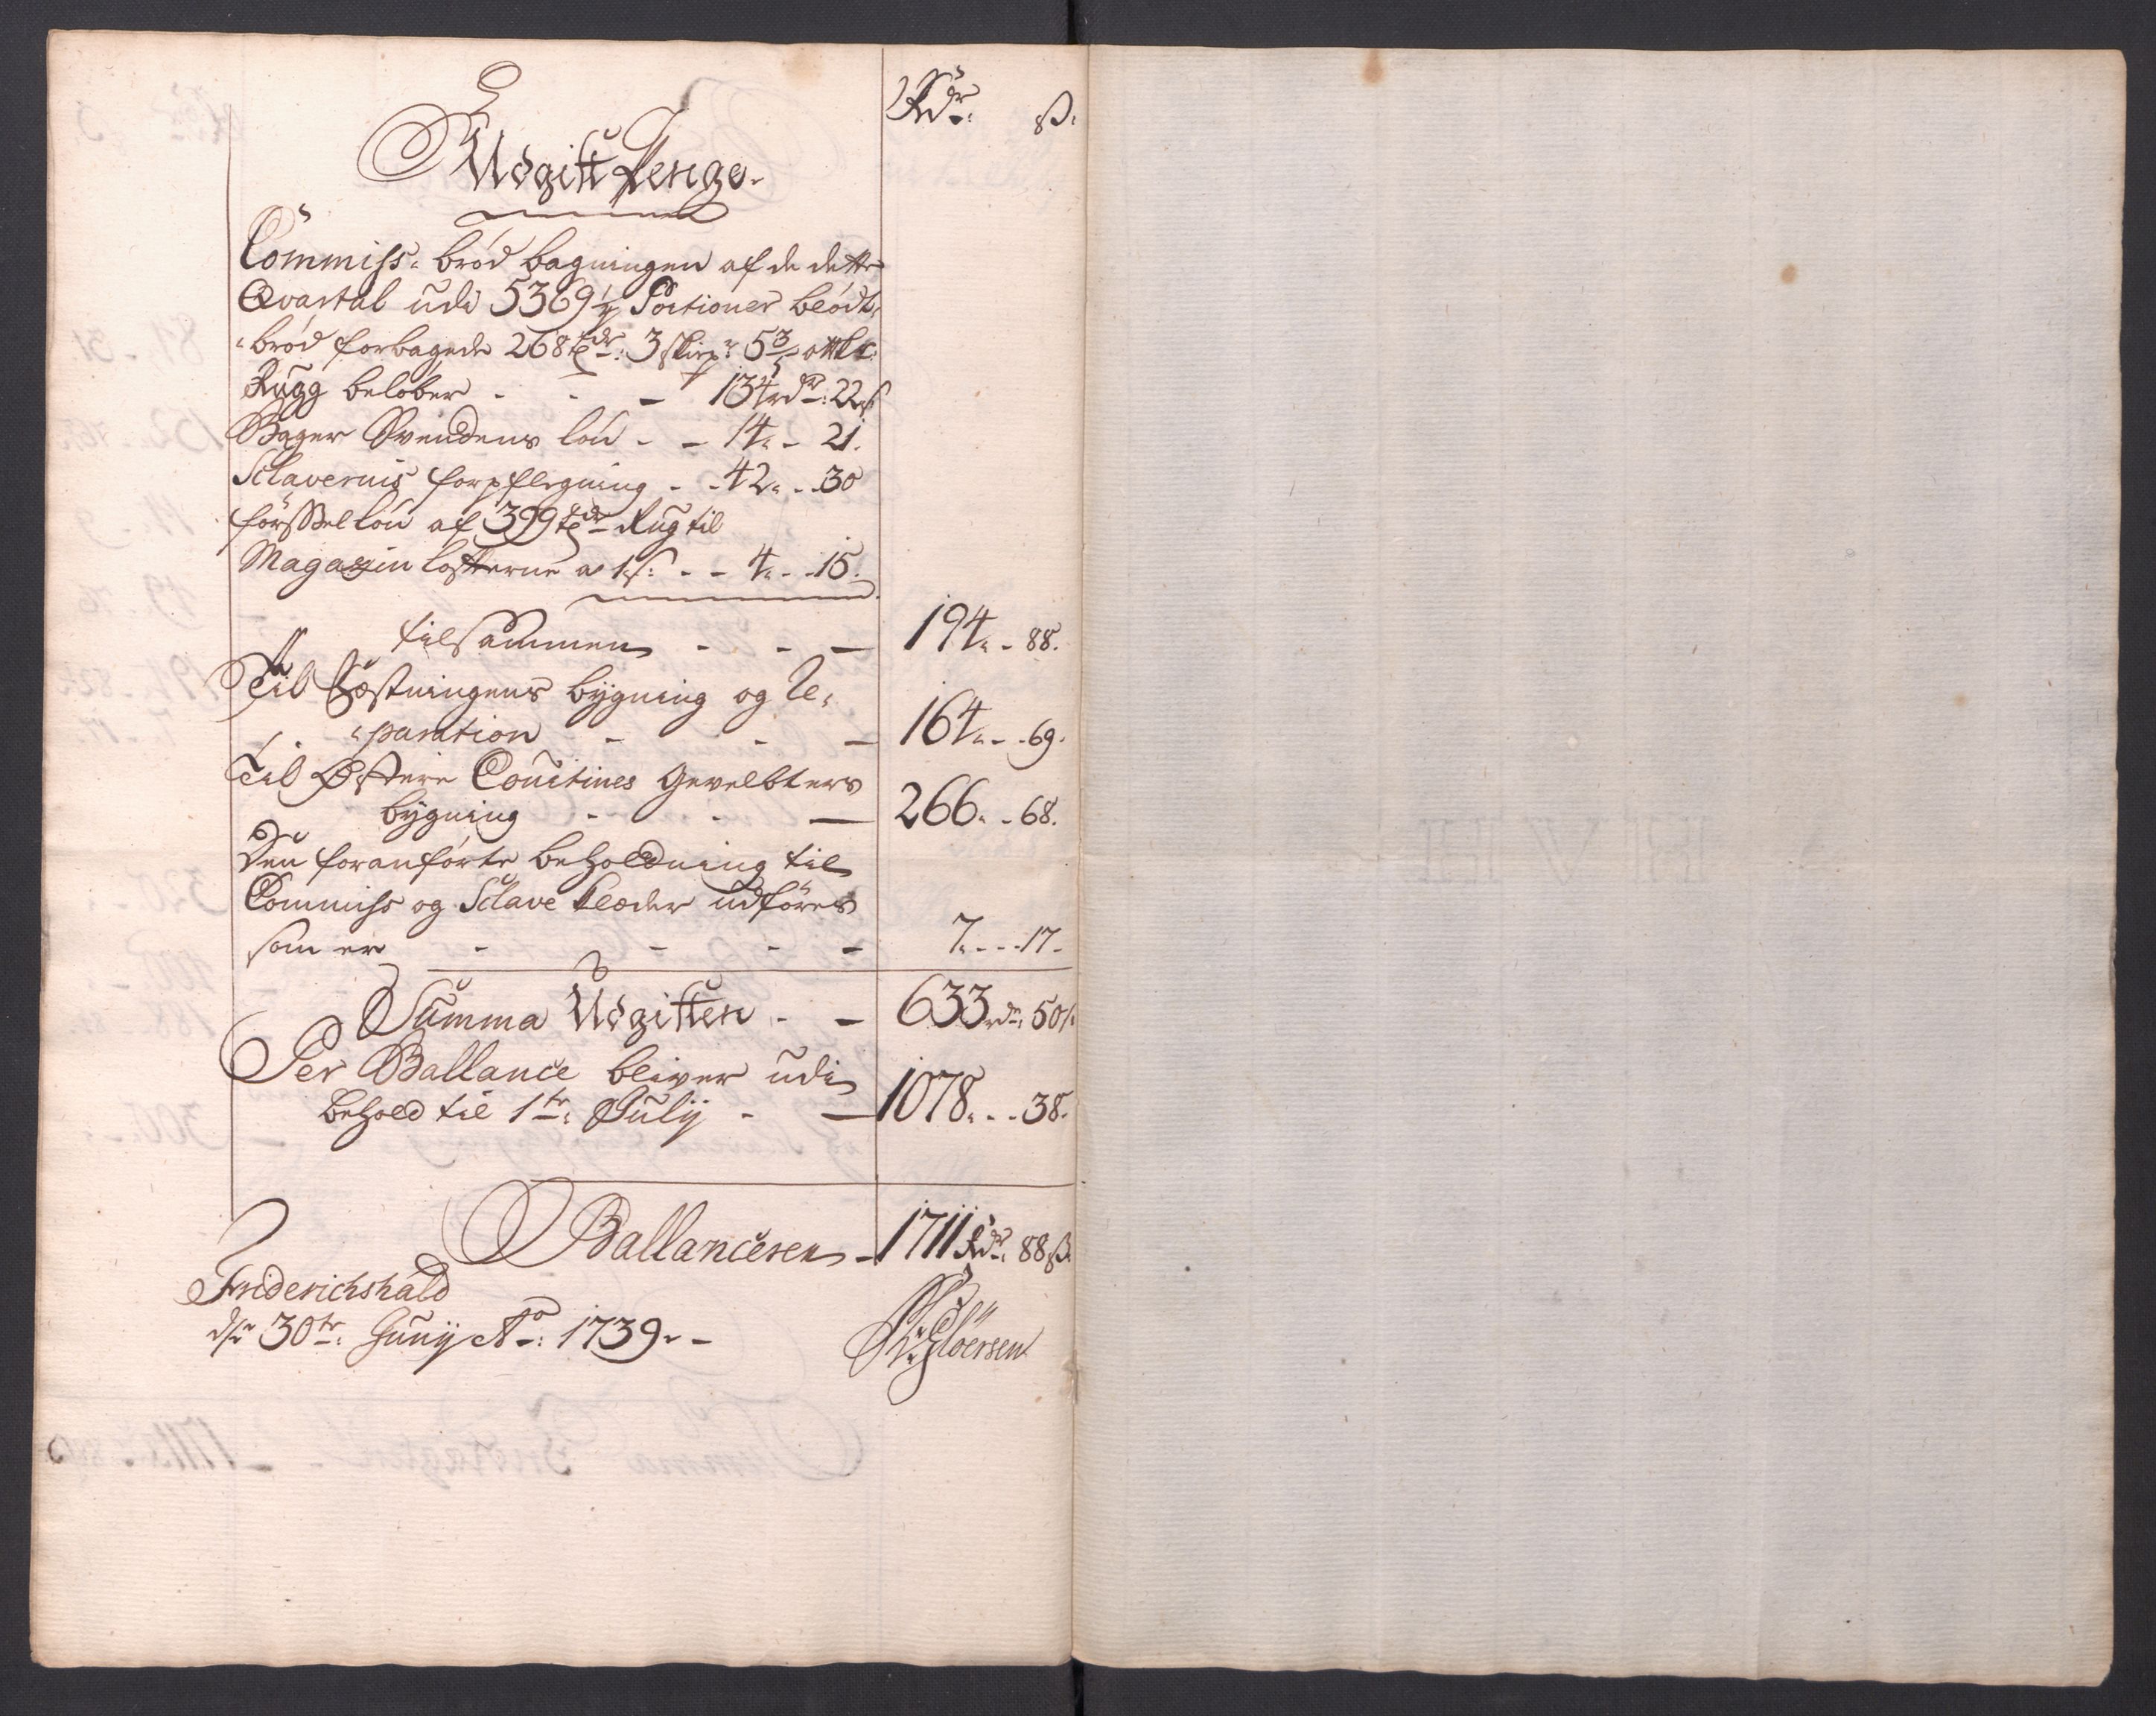 Rdr: ß:
Udgift Penge.
Commiss- brød bagningen af de dette
Qvartal udi 5369½ Portioner blødt-
-brød forbagede 268 tdr: 3 skiep: 5 3/5 ottk:
Rugg beløber - - - 134 rdr: 22 ß
Bager Svendens løn - - 14 - 21.
Sclavernis forpflegning - - 42 - 30
førssel løn af 399 tdr Rug til
Magazin lofterne a 1 ß: - - 4 - 15.
tilsammen - - - 194 - 88.
Til Fæstningens bygning og Re-
-paration - - - 164 - 69.
Til Østere Courtines Gevelbters
bygning - - - 266 - 68.
Den foranførte beholdning til
Commiss og Sclave Klæder udføres
som er - - - - 7 - 17.
Summa Udgiften - - 633 rdr: 50 ß
Per Ballance bliver udi
behold til 1te: Julij - - 1078 - 38.
Ballanceren - 1711 Rdr: 88 ß.
Friderichshald
den 30te: Junij Ao: 1739 -